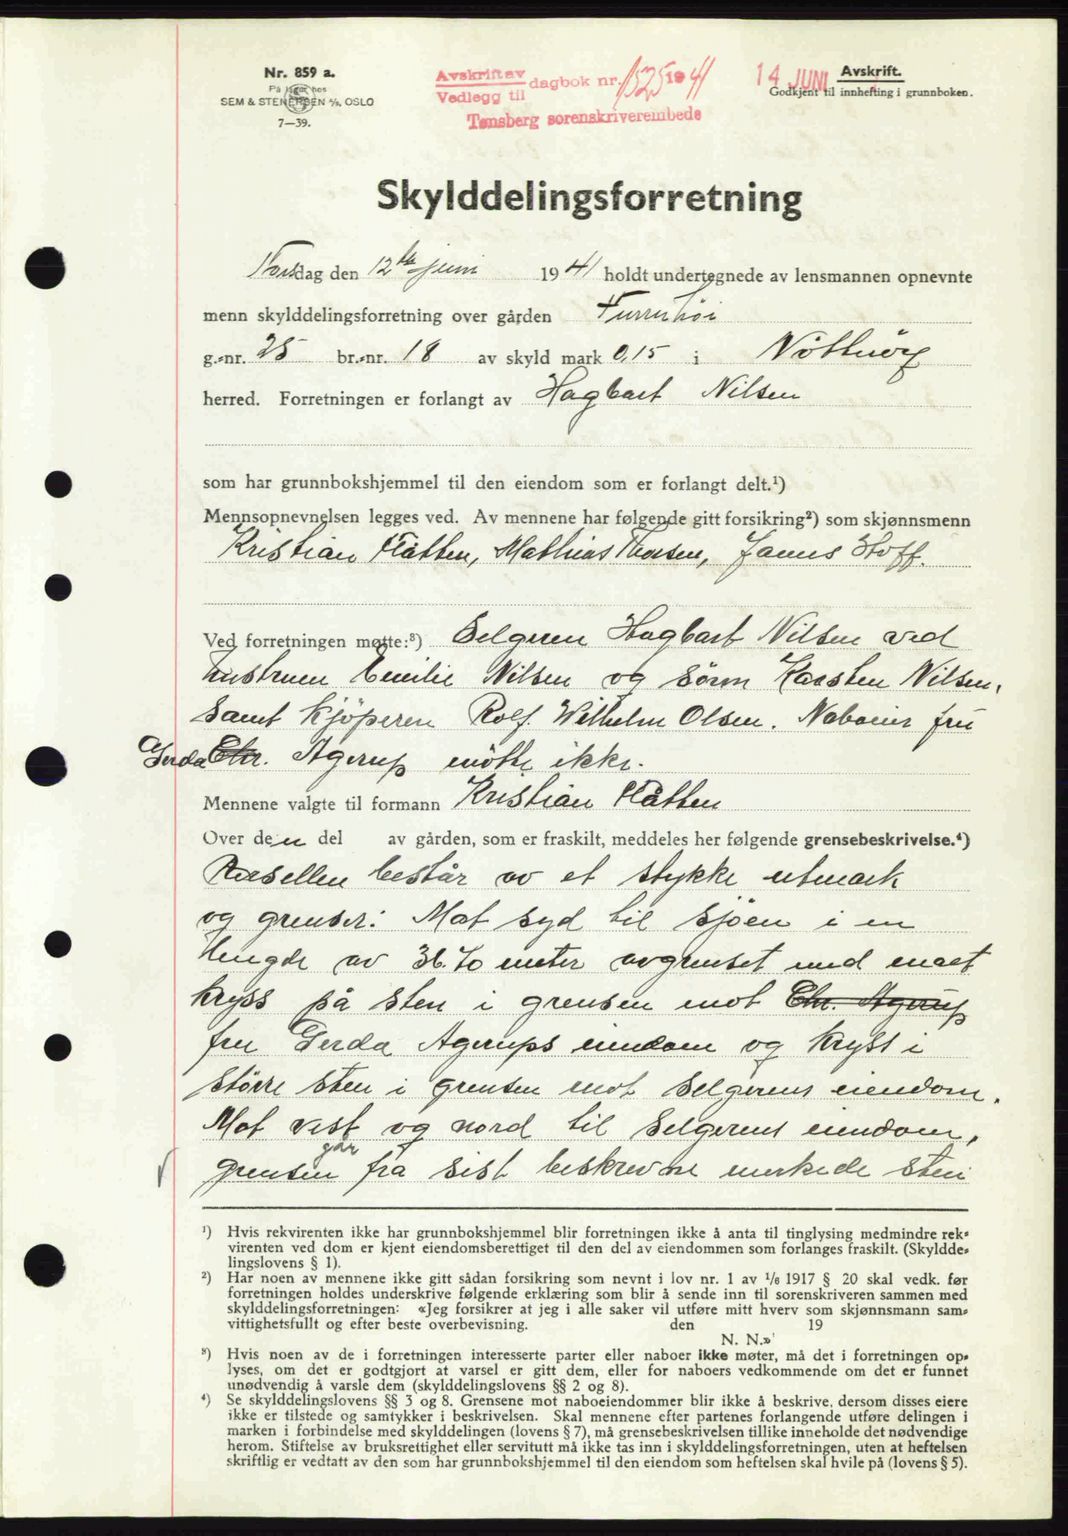 Nr. 859 a.
På lager hos
SEM & STENERSEN A/S, OSLO
7—39.
Avskrift av
Vedlegg til
dagbok nr. 1525 1941
Tønsberg sorenskriverembede
14 JUNI
Avskrift.
Godkjent til innhefting i grunnboken.
Skylddelingsforretning
Torsdag den 12te juni 1941 holdt undertegnede av lensmannen opnevnte
menn skylddelingsforretning over gården Furuhøi
g.-nr. 25 br.-nr. 18 av skyld mark 0,15 i Nøtterøy
herred. Forretningen er forlangt av Hagbart Nilsen
som har grunnbokshjemmel til den eiendom som er forlangt delt.¹)
Mennsopnevnelsen legges ved. Av mennene har følgende gitt forsikring²) som skjønnsmenn
Kristian Flåtten, Mathias Thorsen, James Hoff.
Ved forretningen møtte:³) Selgeren Hagbart Nilsen ved
hustruen Emilie Nilsen og sønn Karsten Nilsen,
samt kjöperen Rolf Wilhelm Olsen. Naboeier fru
Gerda Chr. Agerup mötte ikke.
Mennene valgte til formann Kristian Flåtten
Over den del av gården, som er fraskilt, meddeles her følgende grensebeskrivelse.⁴)
Parsellen består av et stykke utmark
og grenser: Mot syd til sjöen i en
lengde av 36.70 meter avgrenset med maet
kryss på sten i grensen mot Chr. Agerup
fru Gerda Agerups eiendom og kryss i
större sten i grensen mot selgerens eiendom.
Mot vest og nord til selgerens eiendom,
går
grensen fra sist beskrevne merkede sten
¹) Hvis rekvirenten ikke har grunnbokshjemmel blir forretningen ikke å anta til tinglysing medmindre rek-
virenten ved dom er kjent eiendomsberettiget til den del av eiendommen som forlanges fraskilt. (Skyldde-
lingslovens § 1).
²) Har noen av mennene ikke gitt sådan forsikring som nevnt i lov nr. 1 av 1/6 1917 § 20 skal vedk. før
forretningen holdes underskrive følgende erklæring som blir å sende inn til sorenskriveren sammen med
skylddelingsforretningen: «Jeg forsikrer at jeg i alle saker vil utføre mitt hverv som skjønnsmann sam-
vittighetsfullt og efter beste overbevisning. den 19
N. N.»
³) Hvis noen av de i forretningen interesserte parter eller naboer ikke møter, må det i forretningen op-
lyses, om det er godtgjort at varsel er gitt dem, eller for naboers vedkommende om det er funnet
unødvendig å varsle dem (skylddelingslovens §§ 2 og 8).
⁴) Se skylddelingslovens §§ 3 og 8. Grensene mot naboeiendommer blir ikke å beskrive, dersom disses eiere
ikke er tilstede og samtykker i beskrivelsen. Skal mennene efter partenes forlangende utføre delingen i
marken i forbindelse med skylddelingen (lovens § 7), må grensebeskrivelsen tillike inneholde det nødvendige
herom. Stiftelse av bruksrettighet eller servitutt må ikke tas inn i skylddelingsforretningen, uten at heftelsen
skriftlig er vedtatt av den som har grunnbokshjemmel til den eiendom som heftelsen skal hvile på (lovens § 5).